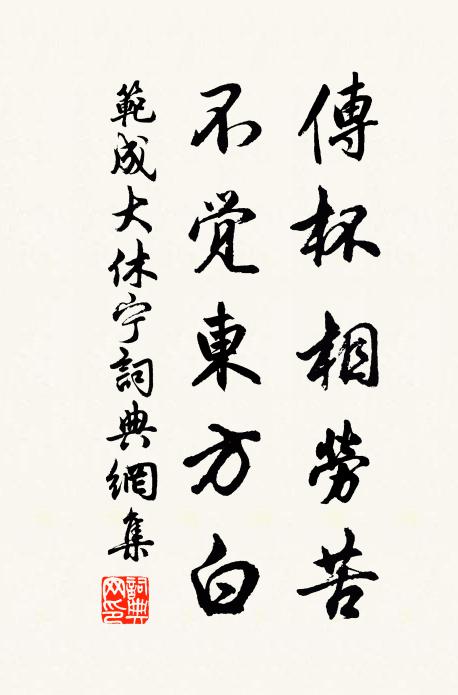 傳杯相勞苦
不覺東方白
範成大休宁詞典網集
詞典網印